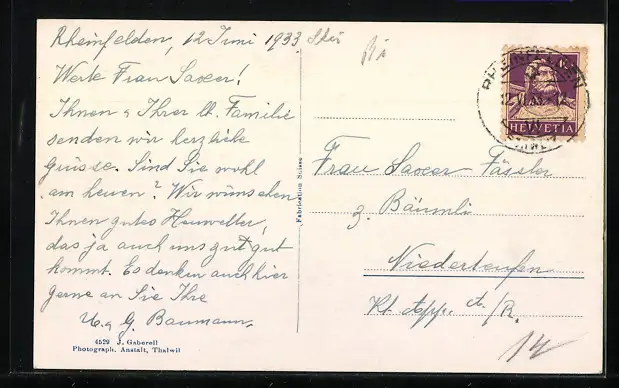 Rheinfelden, 12 Juni 1933.
Werte Frau Saxer!
Ihnen & Ihrer lb. Familie
senden wir herzliche
Grüsse. Sind Sie wohl
am heuen? Wir wünschen
Ihnen gutes Heuwetter,
das ja auch uns gut gut
kommt. Es denken auch hier
gerne an Sie Ihre
U. & G. Baumann.
4529 J. Gaberell
Photograph. Anstalt, Thalwil
Fabrication Suisse
RHEINFELDEN
HELVETIA
Frau Saxer Fässler
z. Bäumli
Niederteufen
Kt. App. A./R.